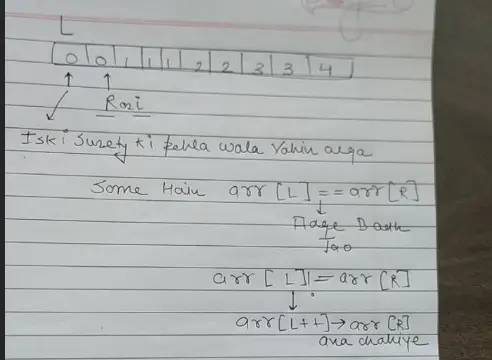 L
0 0 1 1 1 2 2 3 3 4
R or i
Iski surety ki pehla wala vahin aega
Same Hain arr [L] == arr [R]
Aage Badh
Jao
arr [L] != arr [R]
arr [L++] → arr [R]
ana chahiye